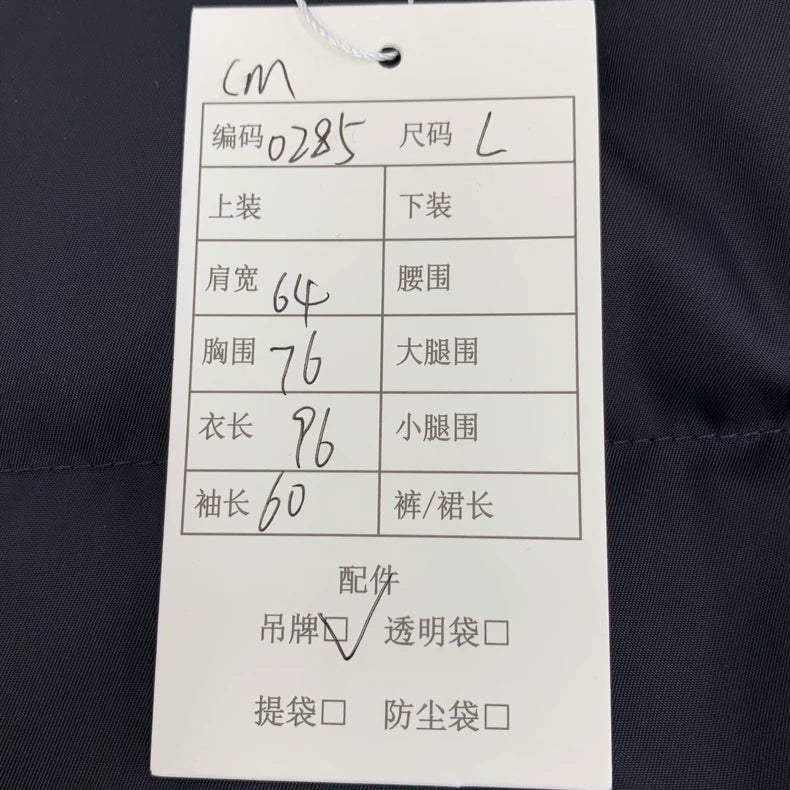 CM
编码 0285 尺码 L
上装 下装
肩宽 64 腰围
胸围 76 大腿围
衣长 96 小腿围
袖长 60 裤/裙长
配件
吊牌☑ 透明袋□
提袋□ 防尘袋□